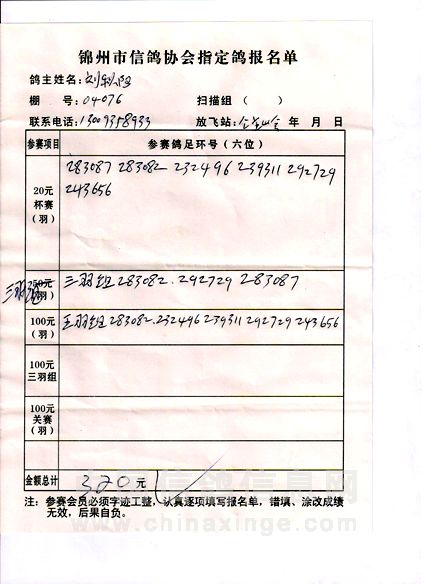 锦州市信鸽协会指定鸽报名单
鸽主姓名:
棚 号: 04076 扫描组 ( )
联系电话: 13009358933 放飞站: 年 月 日
参赛项目 参赛鸽足环号(六位)
20元
杯赛
(羽)
283087 283082 232496 239311 292729
243656
三羽组
(羽)
三羽组 283082. 292729 283087
100元
(羽)
五羽组 283082.232496 239311 292729 243656
100元
三羽组
100元
关赛
(羽)
金额总计 320 元
注: 参赛会员必须字迹工整,认真逐项填写报名单,错填、涂改成绩
无效,后果自负。
中国信鸽信息网
www.chinaxinge.com